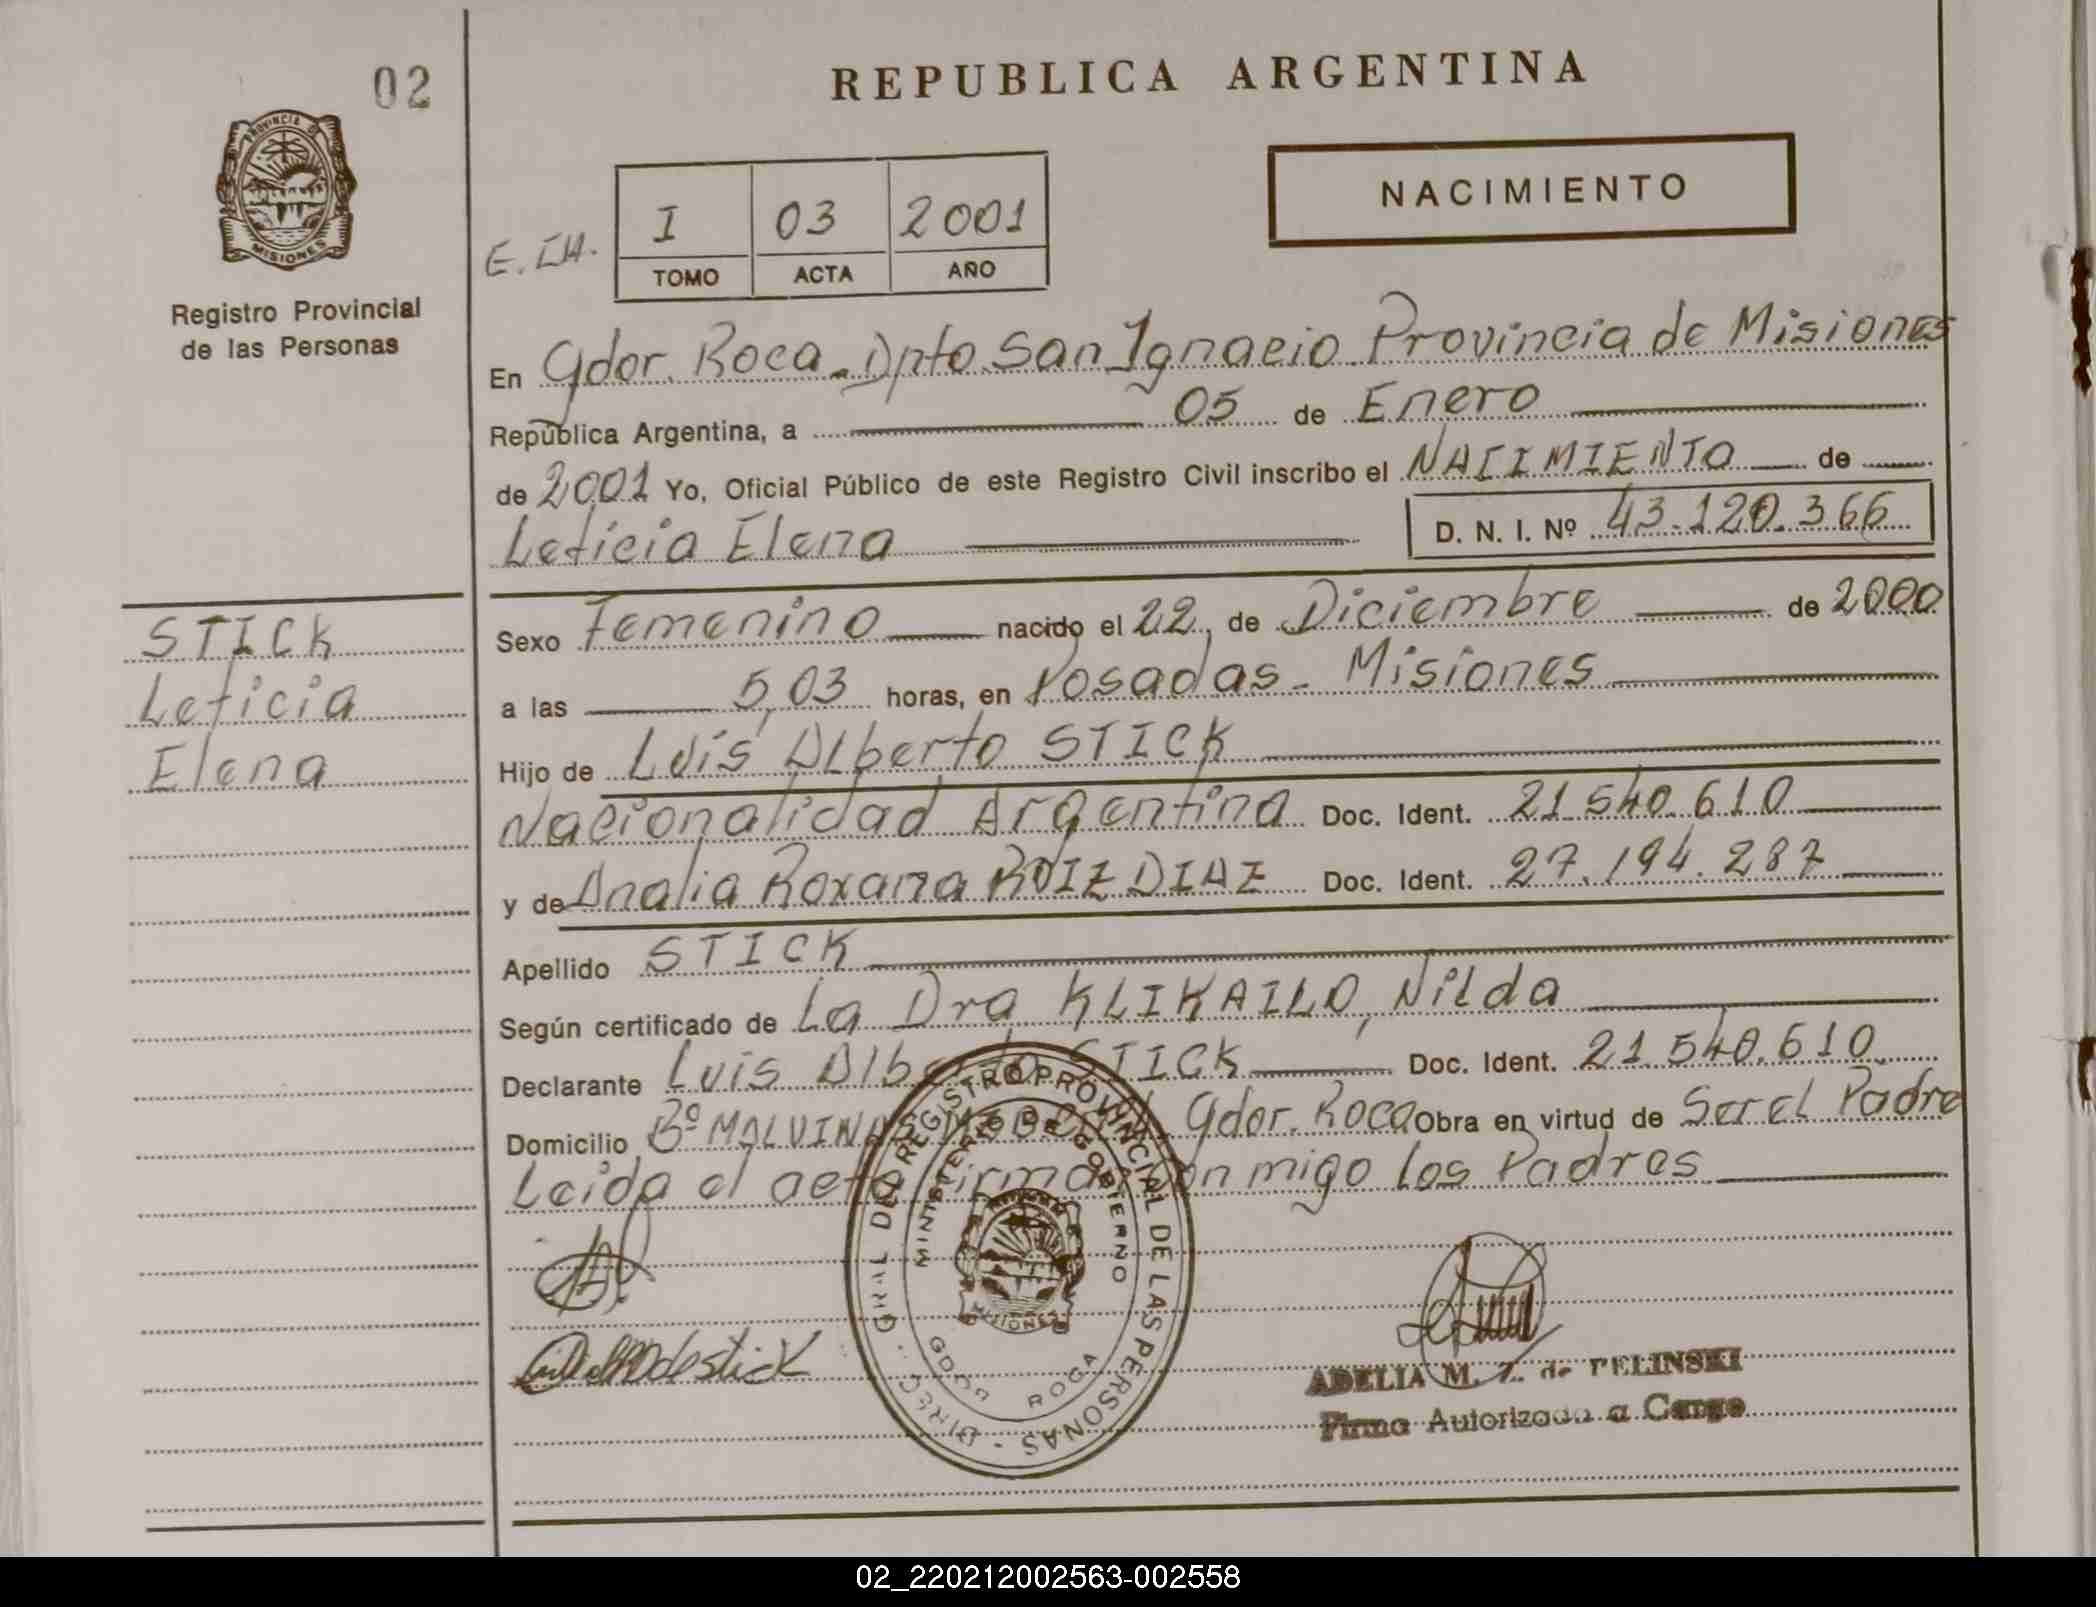 02
REPUBLICA ARGENTINA
PROVINCIA DE
MISIONES
Registro Provincial
de las Personas
NACIMIENTO
I 03 2001
TOMO ACTA AÑO
En Gdor. Roca - Dpto San Ignacio Provincia de Misiones
República Argentina, a 05 de Enero
de 2001 Yo, Oficial Público de este Registro Civil inscribo el NACIMIENTO de
Leticia Elena D. N. I. Nº 43.120.366
STICK
Leticia
Elena
Sexo Femenino nacido el 22 de Diciembre de 2000
a las 5,03 horas, en Posadas - Misiones
Hijo de Luis Alberto STICK
Nacionalidad Argentina Doc. Ident. 21.540.610
y de Analia Roxana RUIZ DIAZ Doc. Ident. 27.194.287
Apellido STICK
Según certificado de La Dra KLIKAILO, Nilda
Declarante Luis Alberto STICK Doc. Ident. 21.540.610
Domicilio Bº MALVINAS Gdor. Roca Obra en virtud de Ser el Padre
Leida el acta firman conmigo los Padres
DIREC. GRAL DEL REGISTRO PROVINCIAL DE LAS PERSONAS
MINISTERIO DE GOBIERNO
MISIONES
GDOR ROCA
ADELIA M. Z. de PELINSKI
Firma Autorizada a Cargo
02_220212002563-002558